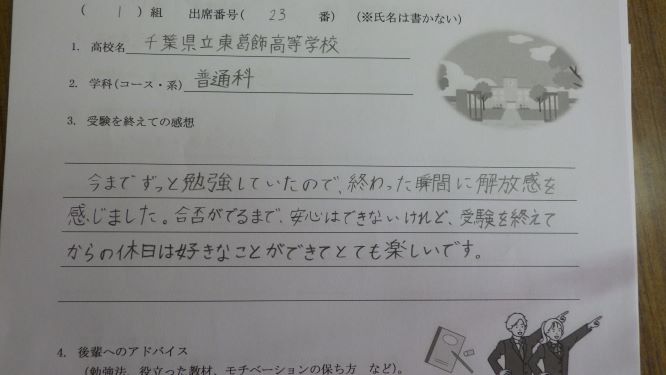 ( 1 ) 組　出席番号( 23 番)　(※氏名は書かない)
1. 高校名　千葉県立東葛飾高等学校
2. 学科(コース・系)　普通科
3. 受験を終えての感想
今までずっと勉強していたので、終わった瞬間に解放感を
感じました。合否がでるまで、安心はできないけれど、受験を終えて
からの休日は好きなことができてとても楽しいです。
4. 後輩へのアドバイス
(勉強法、役立った教材、モチベーションの保ち方　など)。